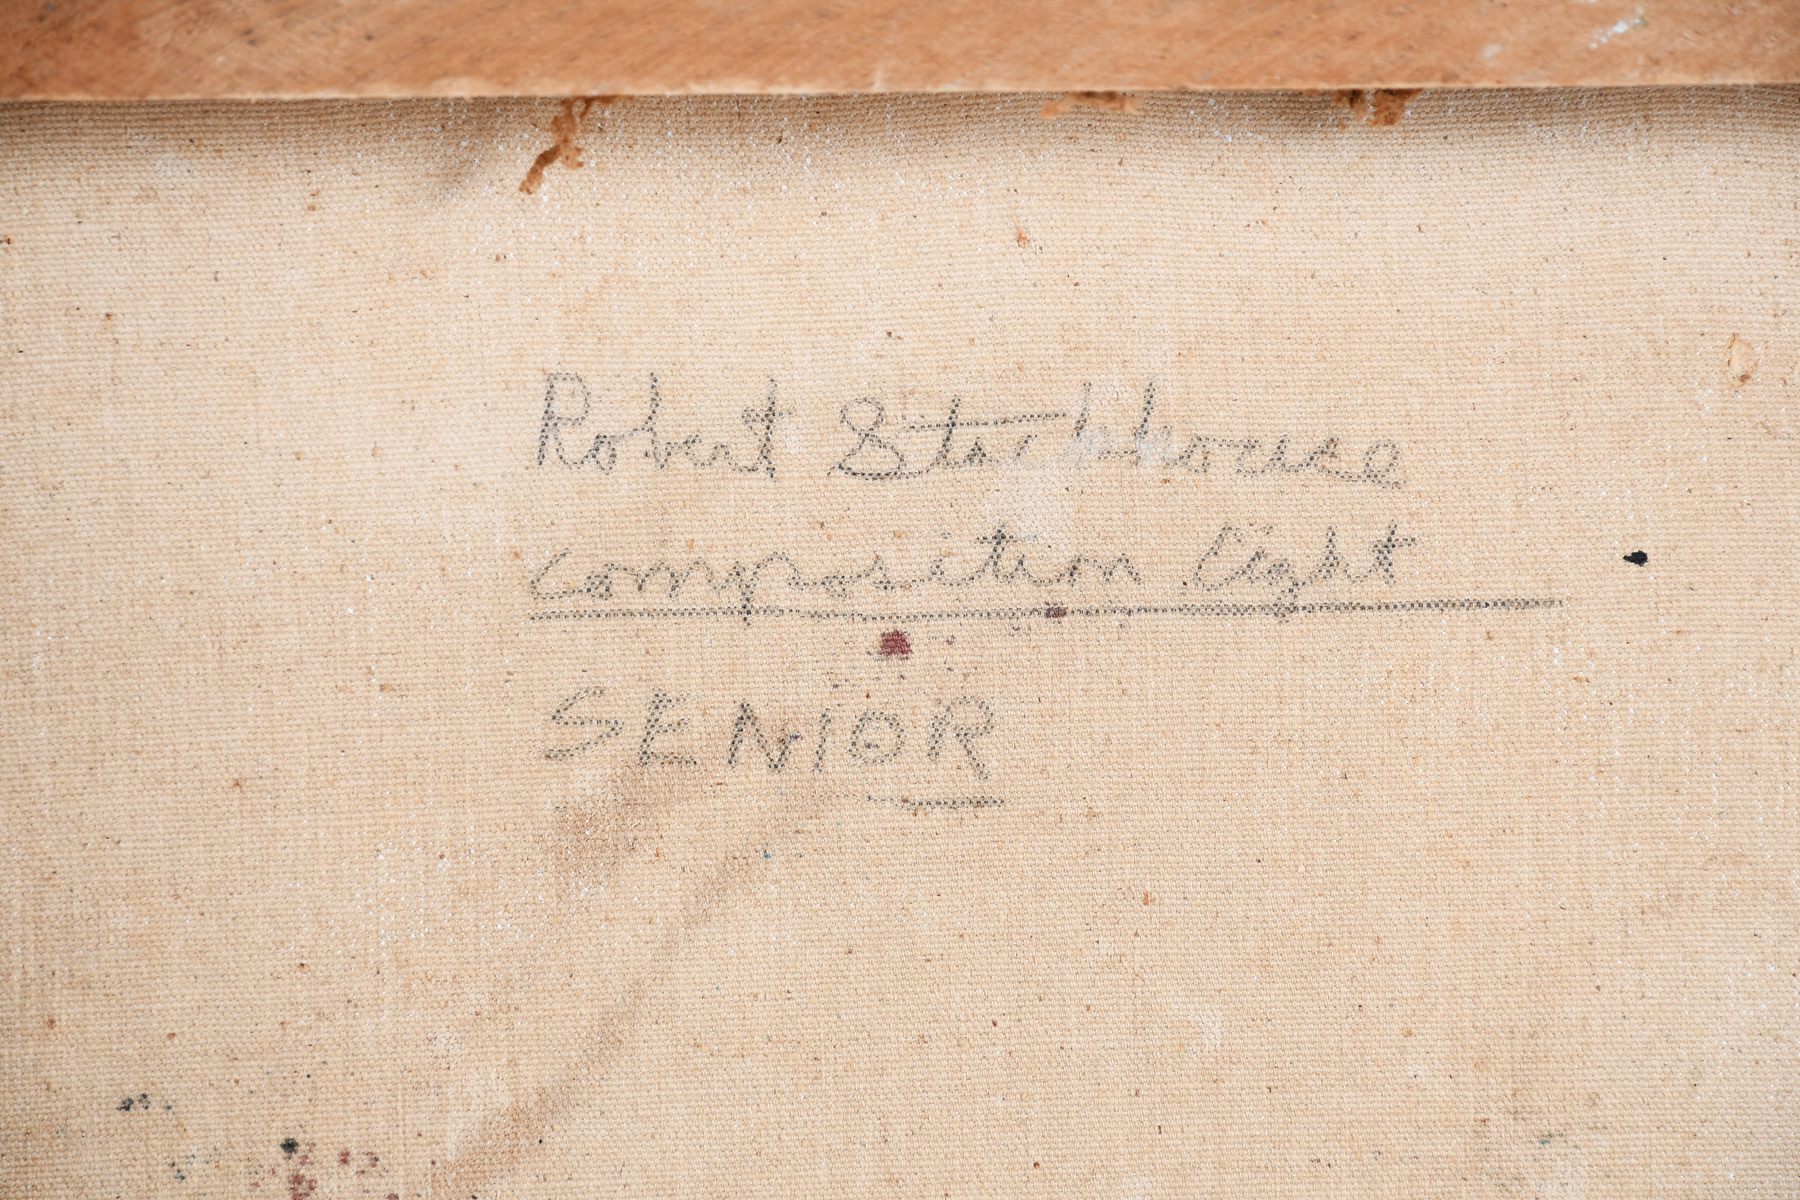 Robert Stackhouse
Composition Eight
SENIOR